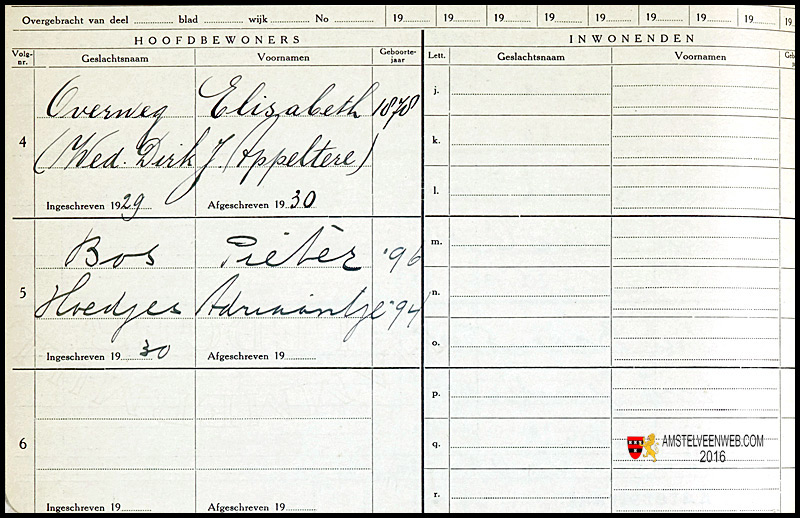 Overgebracht van deel blad wijk No 19 19 19 19 19 19 19 19 19
HOOFDBEWONERS INWONENDEN
Volg-nr. Geslachtsnaam Voornamen Geboorte-jaar Lett. Geslachtsnaam Voornamen Geb
j.
Overweg Elisabeth 1878
4 (Wed. Dirk J. Appeltere) k.
l.
Ingeschreven 1929 Afgeschreven 1930
m.
Bos Pieter '96
5 n.
Hoedjes Adriaantje '94
o.
Ingeschreven 1930 Afgeschreven 19
p.
6 q.
AMSTELVEENWEB.COM
2016
r.
Ingeschreven 19 Afgeschreven 19